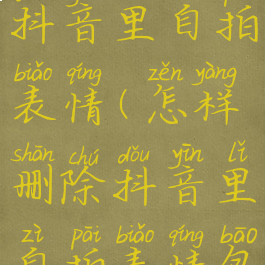 抖音里自拍
biǎo qíng zěn yàng
表情(怎样
shān chú dǒu yīn lǐ
删除抖音里
zì pāi biǎo qíng bāo
自拍表情包